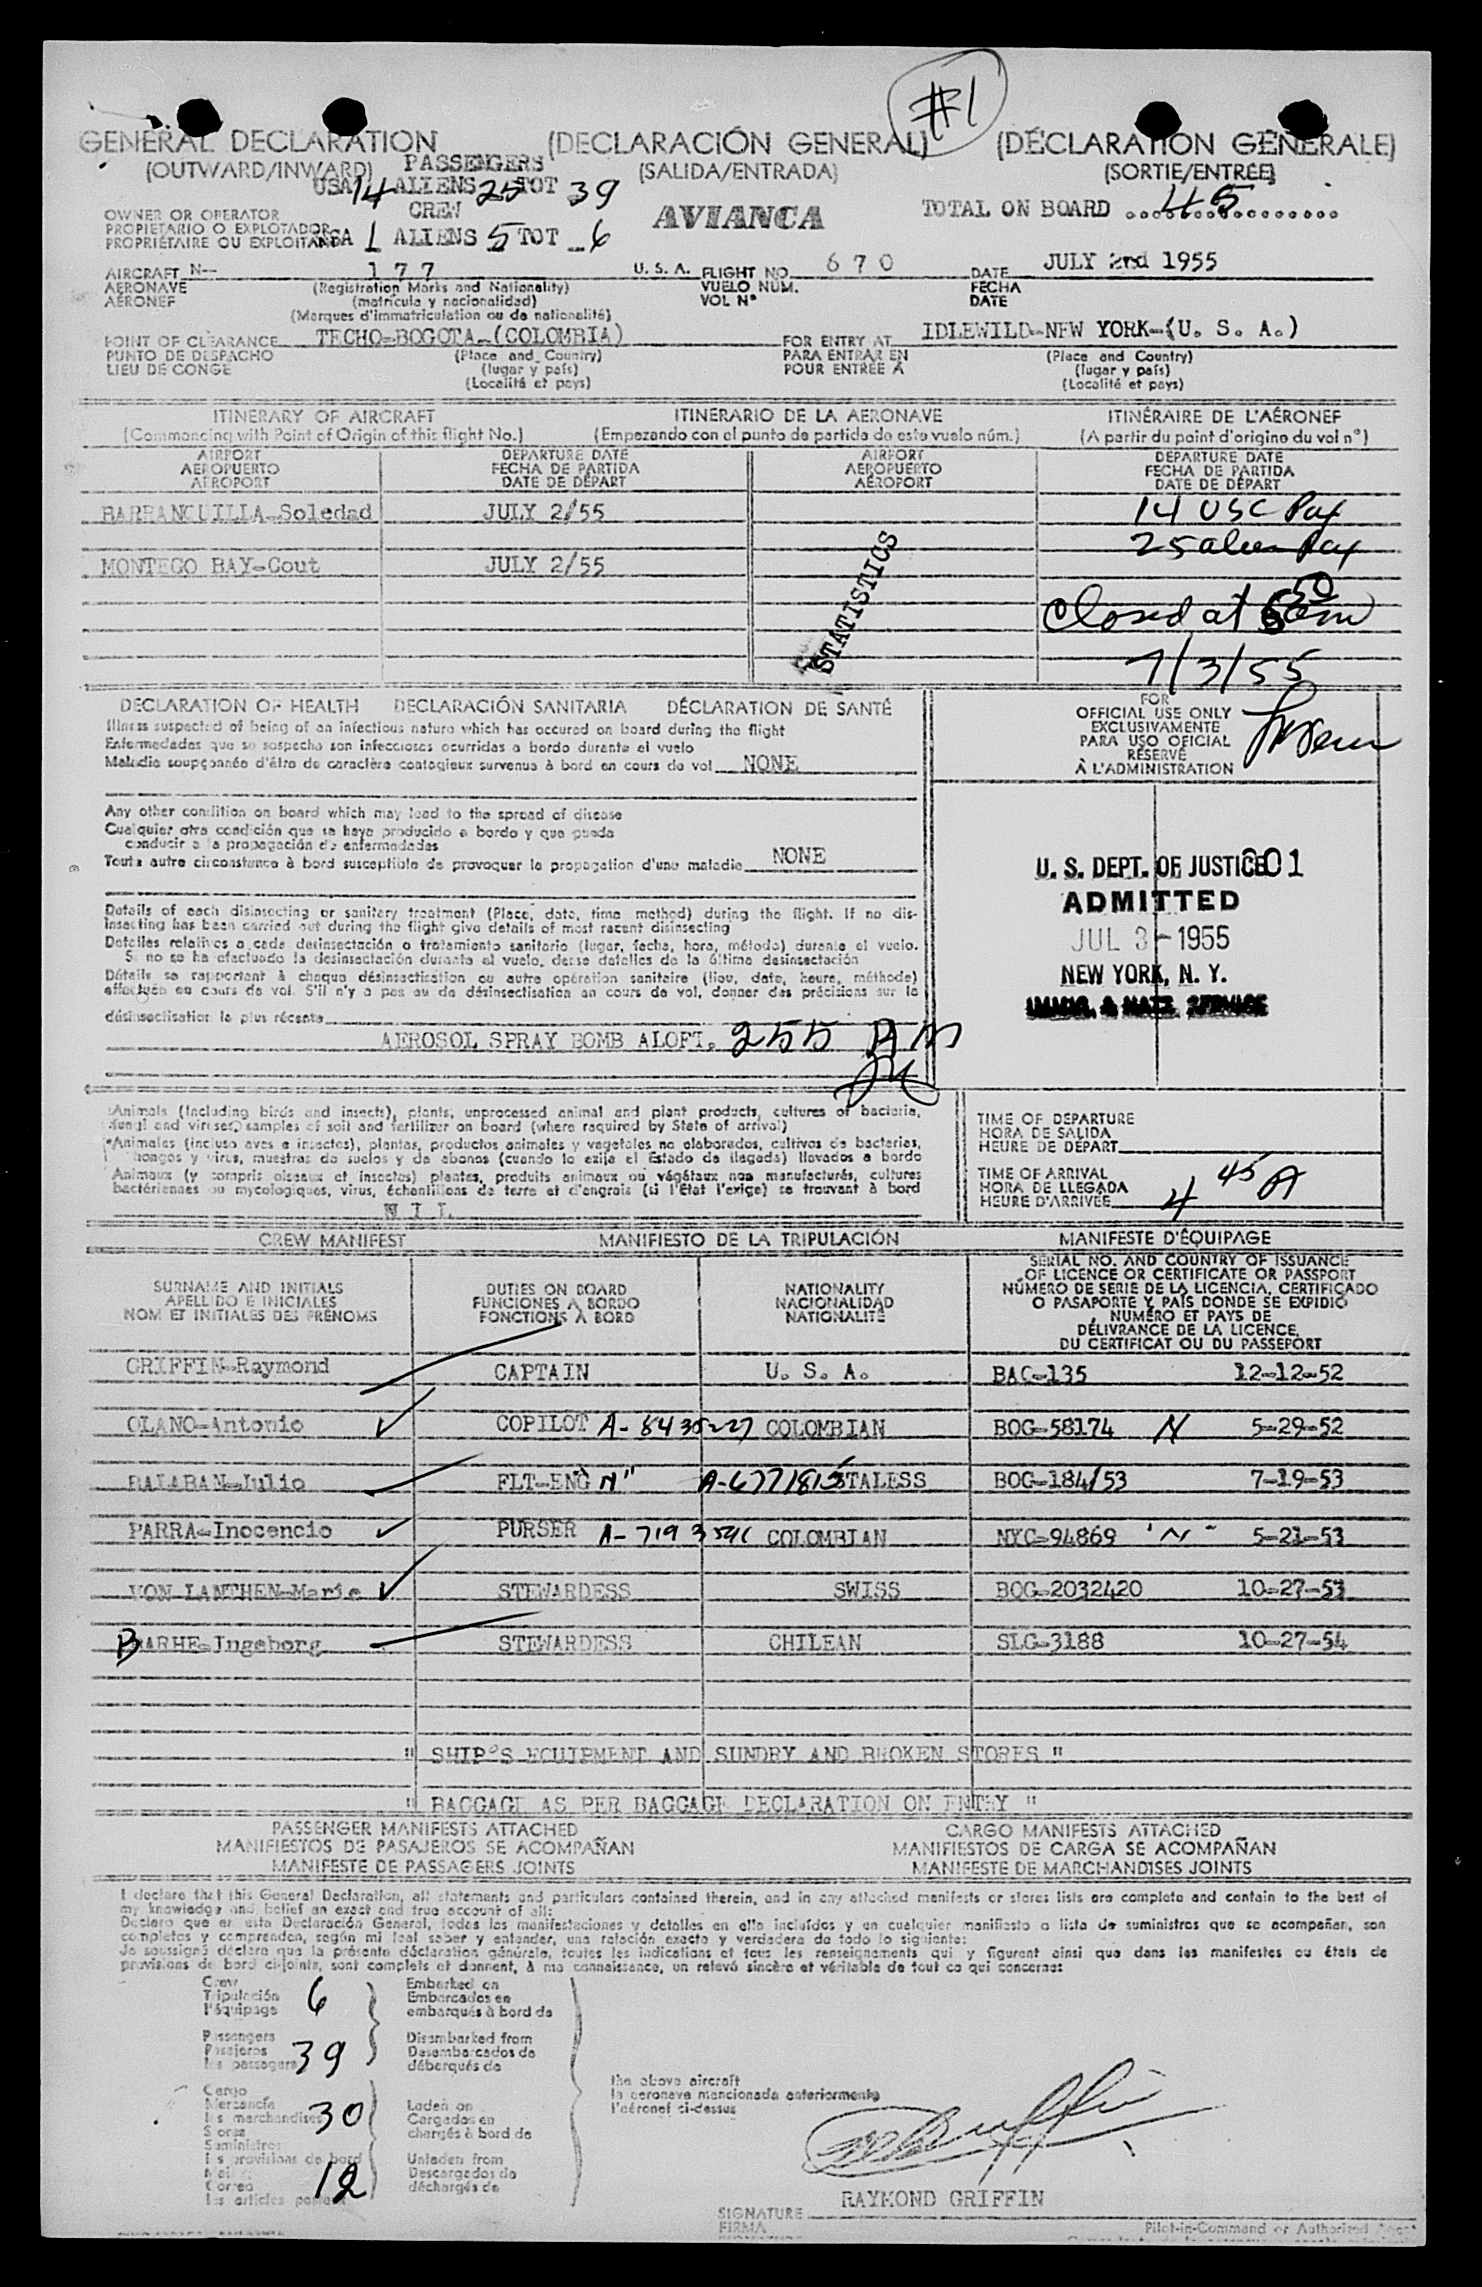 #1
GENERAL DECLARATION (DECLARACIÓN GENERAL) (DÉCLARATION GÉNÉRALE)
(OUTWARD/INWARD) PASSENGERS (SALIDA/ENTRADA) (SORTIE/ENTRÉE)
USA 14 ALIENS 25 TOT 39
CREW AVIANCA TOTAL ON BOARD 45
OWNER OR OPERATOR
PROPIETARIO O EXPLOTADOR
PROPRIÉTAIRE OU EXPLOITANT USA 1 ALIENS 5 TOT 6
AIRCRAFT N-- 177 U. S. A. FLIGHT NO. 670 DATE JULY 2nd 1955
AERONAVE (Registration Marks and Nationality) VUELO NÚM. FECHA
AÉRONEF (matrícula y nacionalidad) VOL N° DATE
(Marques d'immatriculation ou de nationalité)
POINT OF CLEARANCE TECHO-BOGOTA-(COLOMBIA) FOR ENTRY AT IDLEWILD-NEW YORK-(U. S. A.)
PUNTO DE DESPACHO (Place and Country) PARA ENTRAR EN (Place and Country)
LIEU DE CONGE (lugar y país) POUR ENTRÉE À (lugar y país)
(Localité et pays) (Localité et pays)
ITINERARY OF AIRCRAFT ITINERARIO DE LA AERONAVE ITINÉRAIRE DE L'AÉRONEF
(Commencing with Point of Origin of this flight No.) (Empezando con el punto de partida de este vuelo núm.) (A partir du point d'origine du vol n°)
AIRPORT DEPARTURE DATE AIRPORT DEPARTURE DATE
AEROPUERTO FECHA DE PARTIDA AEROPUERTO FECHA DE PARTIDA
AÉROPORT DATE DE DÉPART AÉROPORT DATE DE DÉPART
BARRANQUILLA-Soledad JULY 2/55 14 USC Pax
25 alien Pax
MONTEGO BAY-Gout JULY 2/55
STATISTICS
Closed at 6 50 am
7/3/55
DECLARATION OF HEALTH DECLARACIÓN SANITARIA DÉCLARATION DE SANTÉ
Illness suspected of being of an infectious nature which has occured on board during the flight
Enfermedades que se sospecha son infecciosas ocurridas a bordo durante el vuelo
Maladie soupçonnée d'être de caractère contagieux survenue à bord en cours de vol NONE
FOR
OFFICIAL USE ONLY
EXCLUSIVAMENTE
PARA USO OFICIAL
RÉSERVÉ
À L'ADMINISTRATION
Any other condition on board which may lead to the spread of disease
Cualquier otra condición que se haya producido a bordo y que pueda
conducir a la propagación de enfermedades
Toute autre circonstance à bord susceptible de provoquer la propagation d'une maladie NONE
U. S. DEPT. OF JUSTICE 301
ADMITTED
JUL 3 - 1955
NEW YORK, N. Y.
IMMIG. & NATZ. SERVICE
Details of each disinsecting or sanitary treatment (Place, date, time method) during the flight. If no dis-
insecting has been carried out during the flight give details of most recent disinsecting
Detalles relativos a cada desinsectación o tratamiento sanitario (lugar, fecha, hora, método) durante el vuelo.
Si no se ha efectuado la desinsectación durante el vuelo, dense detalles de la última desinsectación
Détails se rapportant à chaque désinsectisation ou autre opération sanitaire (lieu, date, heure, méthode)
effectuée en cours de vol. S'il n'y a pas eu de désinsectisation en cours de vol, donner des précisions sur la
désinsectisation la plus récente
AEROSOL SPRAY BOMB ALOFT. 255 AM
Animals (Including birds and insects), plants, unprocessed animal and plant products, cultures of bacteria,
fungi and viruses, samples of soil and fertilizer on board (where required by State of arrival)
Animales (incluso aves e insectos), plantas, productos animales y vegetales no elaborados, cultivos de bacterias,
hongos y virus, muestras de suelos y de abonos (cuando lo exija el Estado de llegada) llevados a bordo
Animaux (y compris oiseaux et insectes) plantes, produits animaux ou végétaux non manufacturés, cultures
bactériennes ou mycologiques, virus, échantillons de terre et d'engrais (si l'État l'exige) se trouvant à bord
N I L
TIME OF DEPARTURE
HORA DE SALIDA
HEURE DE DÉPART
TIME OF ARRIVAL
HORA DE LLEGADA
HEURE D'ARRIVÉE 4 45 A
CREW MANIFEST MANIFIESTO DE LA TRIPULACIÓN MANIFESTE D'ÉQUIPAGE
SURNAME AND INITIALS
APELLIDO E INICIALES
NOM ET INITIALES DES PRÉNOMS
DUTIES ON BOARD
FUNCIONES A BORDO
FONCTIONS À BORD
NATIONALITY
NACIONALIDAD
NATIONALITÉ
SERIAL NO. AND COUNTRY OF ISSUANCE
OF LICENCE OR CERTIFICATE OR PASSPORT
NÚMERO DE SERIE DE LA LICENCIA, CERTIFICADO
O PASAPORTE Y PAÍS DONDE SE EXPIDIÓ
NUMÉRO ET PAYS DE
DÉLIVRANCE DE LA LICENCE,
DU CERTIFICAT OU DU PASSEPORT
GRIFFIN-Raymond CAPTAIN U. S. A. BAC-135 12-12-52
OLANO-Antonio COPILOT A-8435227 COLOMBIAN BOG-58174 N 5-29-52
BALABAN-Julio FLT-ENG "N" A-6771815 STALESS BOG-184/53 7-19-53
PARRA-Inocencio PURSER A-7193541 COLOMBIAN NYC-94869 "N" 5-21-53
VON LANTHEN-Marie STEWARDESS SWISS BOG-2032420 10-27-53
BARHE-Ingeborg STEWARDESS CHILEAN SLG-3188 10-27-54
" SHIP'S EQUIPMENT AND SUNDRY AND BROKEN STORES "
" BAGGAGE AS PER BAGGAGE DECLARATION ON ENTRY "
PASSENGER MANIFESTS ATTACHED CARGO MANIFESTS ATTACHED
MANIFIESTOS DE PASAJEROS SE ACOMPAÑAN MANIFIESTOS DE CARGA SE ACOMPAÑAN
MANIFESTE DE PASSAGERS JOINTS MANIFESTE DE MARCHANDISES JOINTS
I declare that this General Declaration, all statements and particulars contained therein, and in any attached manifests or stores lists are complete and contain to the best of
my knowledge and belief an exact and true account of all:
Declaro que en esta Declaración General, todas las manifestaciones y detalles en ella incluídos y en cualquier manifiesto o lista de suministros que se acompañan, son
completos y comprenden, según mi leal saber y entender, una relación exacta y verdadera de todo lo siguiente:
Je soussigné déclare que la présente déclaration générale, toutes les indications et tous les renseignements qui y figurent ainsi que dans les manifestes ou états de
provisions de bord ci-joints, sont complets et donnent, à ma connaissance, un relevé sincère et véritable de tout ce qui concerne:
Crew
Tripulación
l'équipage 6
Embarked on
Embarcados en
embarqués à bord de
Passengers
Pasajeros
les passagers 39
Disembarked from
Desembarcados de
débarqués de
the above aircraft
la aeronave mencionada anteriormente
l'aéronef ci-dessus
Cargo
Mercancía
les marchandises 30
Stores
Suministros
les provisions de bord
Laden on
Cargados en
chargés à bord de
Mail
Correo
les articles postaux 12
Unladen from
Descargados de
déchargés de
RAYMOND GRIFFIN
SIGNATURE
FIRMA
Pilot-in-Command or Authorized Agent